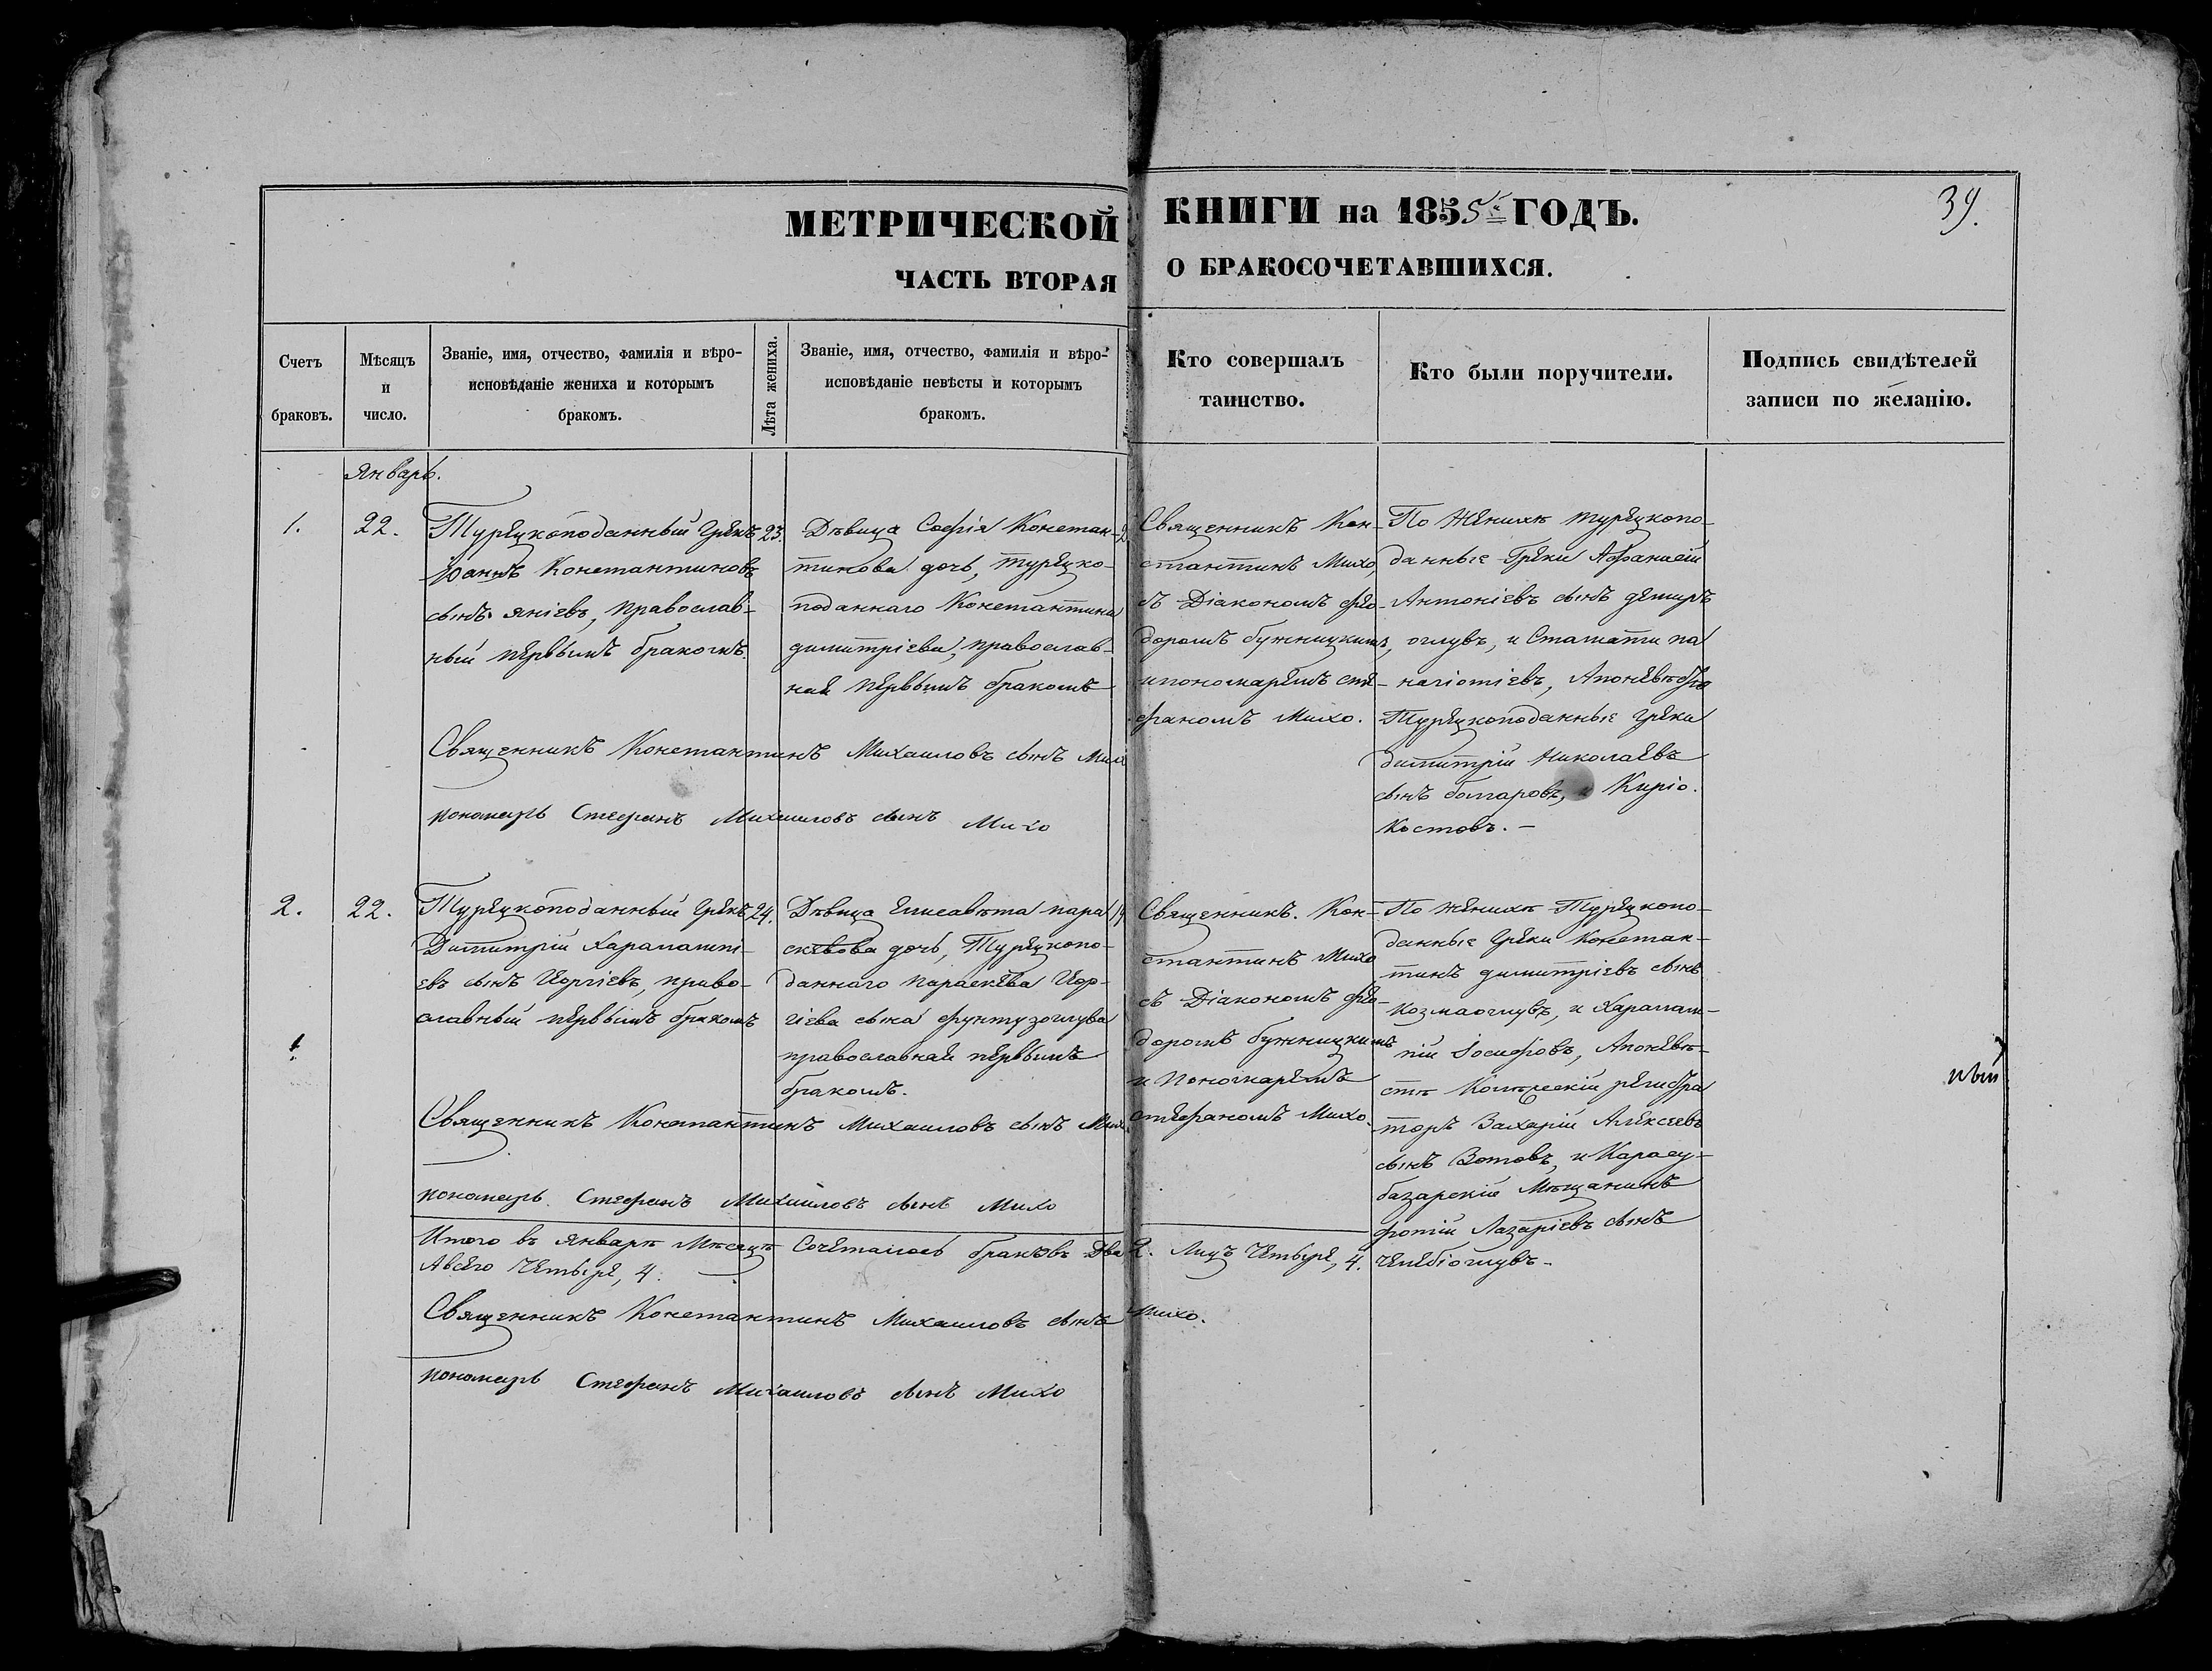 МЕТРИЧЕСКОЙ КНИГИ на 1855й ГОДЪ.
39.
ЧАСТЬ ВТОРАЯ О БРАКОСОЧЕТАВШИХСЯ.
Счетъ
браковъ.
Мѣсяцъ
и
число.
Званіе, имя, отчество, фамилія и вѣро-
исповѣданіе жениха и которымъ
бракомъ.
Лѣта жениха.
Званіе, имя, отчество, фамилія и вѣро-
исповѣданіе невѣсты и которымъ
бракомъ.
Кто совершалъ
таинство.
Кто были поручители.
Подпись свидѣтелей
записи по желанію.
Январь.
1.
22.
Турецкоподанный Грекъ
Юаннъ Константиновъ
сынъ Яніевъ, Православ-
ный первымъ бракомъ.
23.
Дѣвица Софія Констан-
тинова дочь, Турецко-
поданнаго Константина
димитріева, православ-
ная первымъ бракомъ
Священникъ Кон-
стантинъ Михо,
съ Діакономъ Фео-
доромъ бужницкимъ,
и пономаремъ Сте-
фаномъ Михо.
По Женихѣ турецкопо-
данные Греки Афанасій
Антоніевъ сынъ демиръ
оглувъ, и Стамати па
нагіотіевъ, А по невѣстѣ
Турецкоподанные греки
димитрій Николаевъ
сынъ болгаровъ, и Киріо.
Костовъ. —
Священникъ Константинъ Михаиловъ сынъ Мих
пономарь Стефанъ Михаиловъ сынъ Михо
2.
22.
Турецкоподанный Грекъ
Димитрій Харалампі-
евъ сынъ Іоргіевъ, право-
славный первымъ бракомъ
24.
Дѣвица Елисавета пара
скевова дочь, Турецкопо-
даннаго Параскева Іор-
гіева сына фунтузоглува
православная первымъ
бракомъ.
19
Священникъ. Кон-
стантинъ Михо
съ Діакономъ Фео-
доромъ бужницкимъ
и Пономаремъ
Стефаномъ Михо.
По женихѣ Турецкопо-
данные Греки Констан-
тинъ димитріевъ сынъ
Козмаоглувъ, и Харалам-
пій Іосифовъ, А по невѣ-
стѣ Колежскій регистра
торъ Захарій Алексеевъ
сынъ Зотовъ, и Карасу-
базарскій Мѣщанинъ
фотій Лазаріевъ сынъ
Челебіоглувъ.
Священникъ Константинъ Михаиловъ сынъ Мих
пономарь Стефанъ Михаиловъ сынъ Михо
Итого въ Январѣ Мѣсяцѣ Сочеталось браковъ Два 2. Лицъ Четыре, 4.
А всего Четыре, 4.
Священникъ Константинъ Михаиловъ сынъ Михо.
пономарь Стефанъ Михаиловъ сынъ Михо